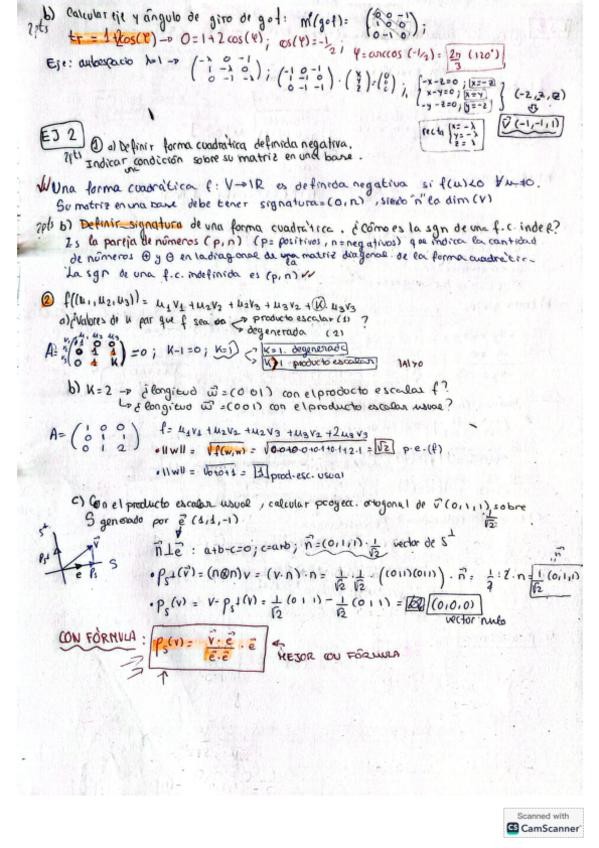 b) Calcular eje y ángulo de giro de gof: m(gof) = (0 0 -1 / 1 0 0 / 0 -1 0);
2pts
tr = 1+2cos(φ) → 0=1+2cos(φ); cos(φ)=-1/2; φ=arccos(-1/2) = 2π/3 (120°)
Eje: autoespacio λ=1 → (-λ 0 -1 / 1 -λ 0 / 0 -1 -λ); (-1 0 -1 / 1 -1 0 / 0 -1 -1) · (x / y / z) = (0 / 0 / 0); { -x-z=0; x=-z / x-y=0; x=y / -y-z=0; y=-z } (-z,-z,z)
recta { x=-λ / y=-λ / z=λ } v⃗(-1,-1,1)
EJ 2
2pts
① a) Definir forma cuadrática definida negativa.
Indicar una condición sobre su matriz en una base.
Una forma cuadrática f: V→ℝ es definida negativa si f(u)<0 ∀u≠0.
Su matriz en una base debe tener signatura=(0,n), siendo "n" la dim(V)
2pts b) Definir signatura de una forma cuadrática. ¿Cómo es la sgn de una f.c. indef?
Es la pareja de números (p,n) (p=positivos, n=negativos) que indica la cantidad
de números ⊕ y ⊖ en la diagonal de una matriz diagonal de la forma cuadrática.
La sgn de una f.c. indefinida es (p,n)
② f((u1,u2,u3)) = u1v1+u2v2+u2v3+u3v2+K·u3v3
a) ¿Valores de K par que f sea producto escalar (1) ?
degenerada (2)
u1 u2 u3
A= (1 0 0 / 0 1 1 / 0 1 K) =0; K-1=0; K=1
K=1 degenerada
K>1 producto escalar |A|>0
b) K=2 → ¿longitud w⃗=(001) con el producto escalar f?
↳ ¿longitud w⃗=(001) con el producto escalar usual?
A= (1 0 0 / 0 1 1 / 0 1 2) f= u1v1+u2v2+u2v3+u3v2+2u3v3
• ||w|| = √f(w,w) = √0·0+0·0+0·1+0·1+2·1 = √2 p.e.(f)
• ||w|| = √0+0+1 = 1 prod.esc. usual
c) Con el producto escalar usual, calcular proyec. ortogonal de v⃗(0,1,1) sobre
S generado por e⃗(1,1,-1) 1/√2
S⊥ v⃗ Ps⊥ e Ps S
n⃗⊥e⃗ : a+b-c=0; c=a+b; n⃗=(0,1,1)·1/√2 vector de S⊥
• Ps⊥(v⃗) = (n⊗n)v = (v·n)·n = 1/√2 · 1/√2 · ((011)(011)) · n⃗ = 1/2·2·n = 1/√2 (0,1,1)
• Ps(v) = v-Ps⊥(v) = 1/√2 (011) - 1/√2 (011) = (0,0,0)
vector nulo
CON FÓRMULA: Ps(v) = v⃗·e⃗ / e⃗·e⃗ · e⃗ ← MEJOR CON FÓRMULA
Scanned with
CS CamScanner